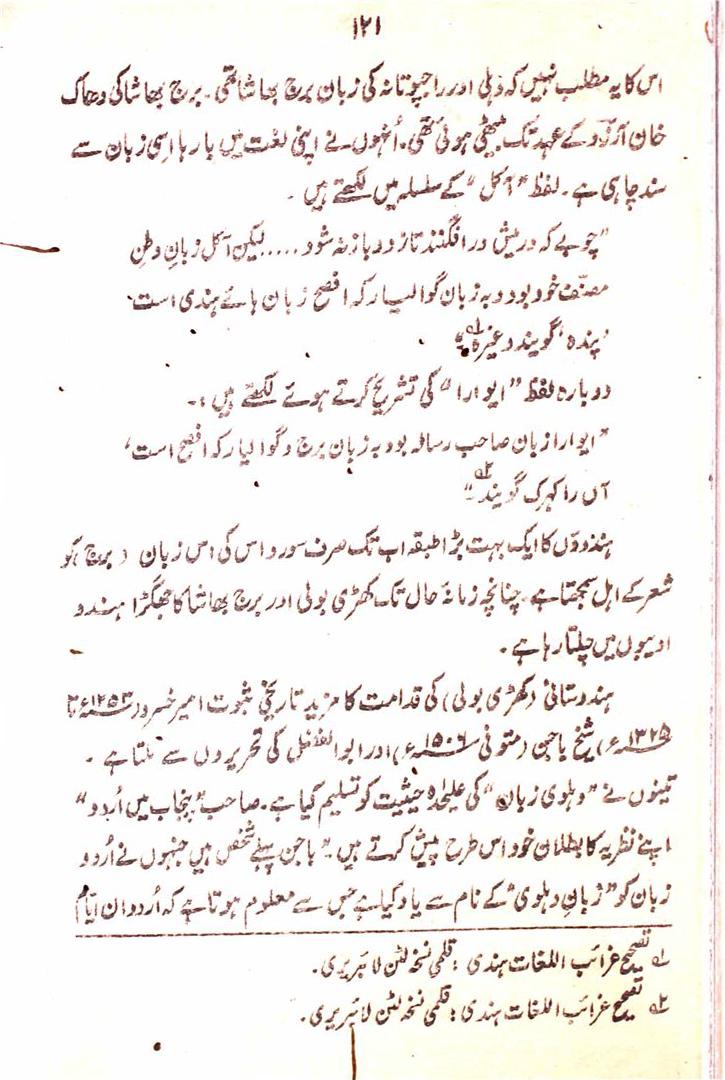 ۱۲۱
اس کا یہ مطلب نہیں کہ دہلی اور راجپوتانہ کی زبان برج بھاشا تھی۔ برج بھاشا کی دھاک
خان آرزو کے عہد تک بیٹھی ہوئی تھی۔ اُنہوں نے اپنی لغت میں بار بار اسی زبان سے
سند چاہی ہے۔ لفظ "آکل" کے سلسلہ میں لکھتے ہیں۔
"چوبے کہ در پیش در افگنند تا زود باز نہ شود ..... لیکن آکل زبانِ وطنِ
مصنّف خود بود و بہ زبان گوالیار کہ افصح زبان ہائے ہندی است
'پنده' گویند وغیرہ ؎۱"
دوبارہ لفظ "ایوارا" کی تشریح کرتے ہوئے لکھتے ہیں :-
"ایوارا زبان صاحب رسالہ بود بہ زبان برج و گوالیار کہ افصح است،
آں را کہرک گویند ؎۲"
ہندوؤں کا ایک بہت بڑا طبقہ اب تک صرف سور داس کی اس زبان (برج) کو
شعر کے اہل سمجھتا ہے۔ چنانچہ زمانۂ حال تک کھڑی بولی اور برج بھاشا کا جھگڑا ہندو
ادیبوں میں چلتا رہا ہے۔
ہندوستانی (کھڑی بولی) کی قدامت کا مزید تاریخی ثبوت امیر خسرو (۱۲۵۳ء تا
۱۳۲۵ء) شیخ باجن (متوفی ۱۵۰۶ء) اور ابوالفضل کی تحریروں سے ملتا ہے۔
تینوں نے "دہلوی زبان" کی علیحدہ حیثیت کو تسلیم کیا ہے۔ صاحب "پنجاب میں اُردو"
اپنے نظریہ کا بطلان خود اس طرح پیش کرتے ہیں۔ "باجن پہلے شخص ہیں جنہوں نے اُردو
زبان کو "زبانِ دہلوی" کے نام سے یاد کیا ہے جس سے معلوم ہوتا ہے کہ اُردو ان ایّام
؎۱ تصحیح غرائب اللغات ہندی : قلمی نسخہ لٹن لائبریری۔
؎۲ تصحیح غرائب اللغات ہندی : قلمی نسخہ لٹن لائبریری۔